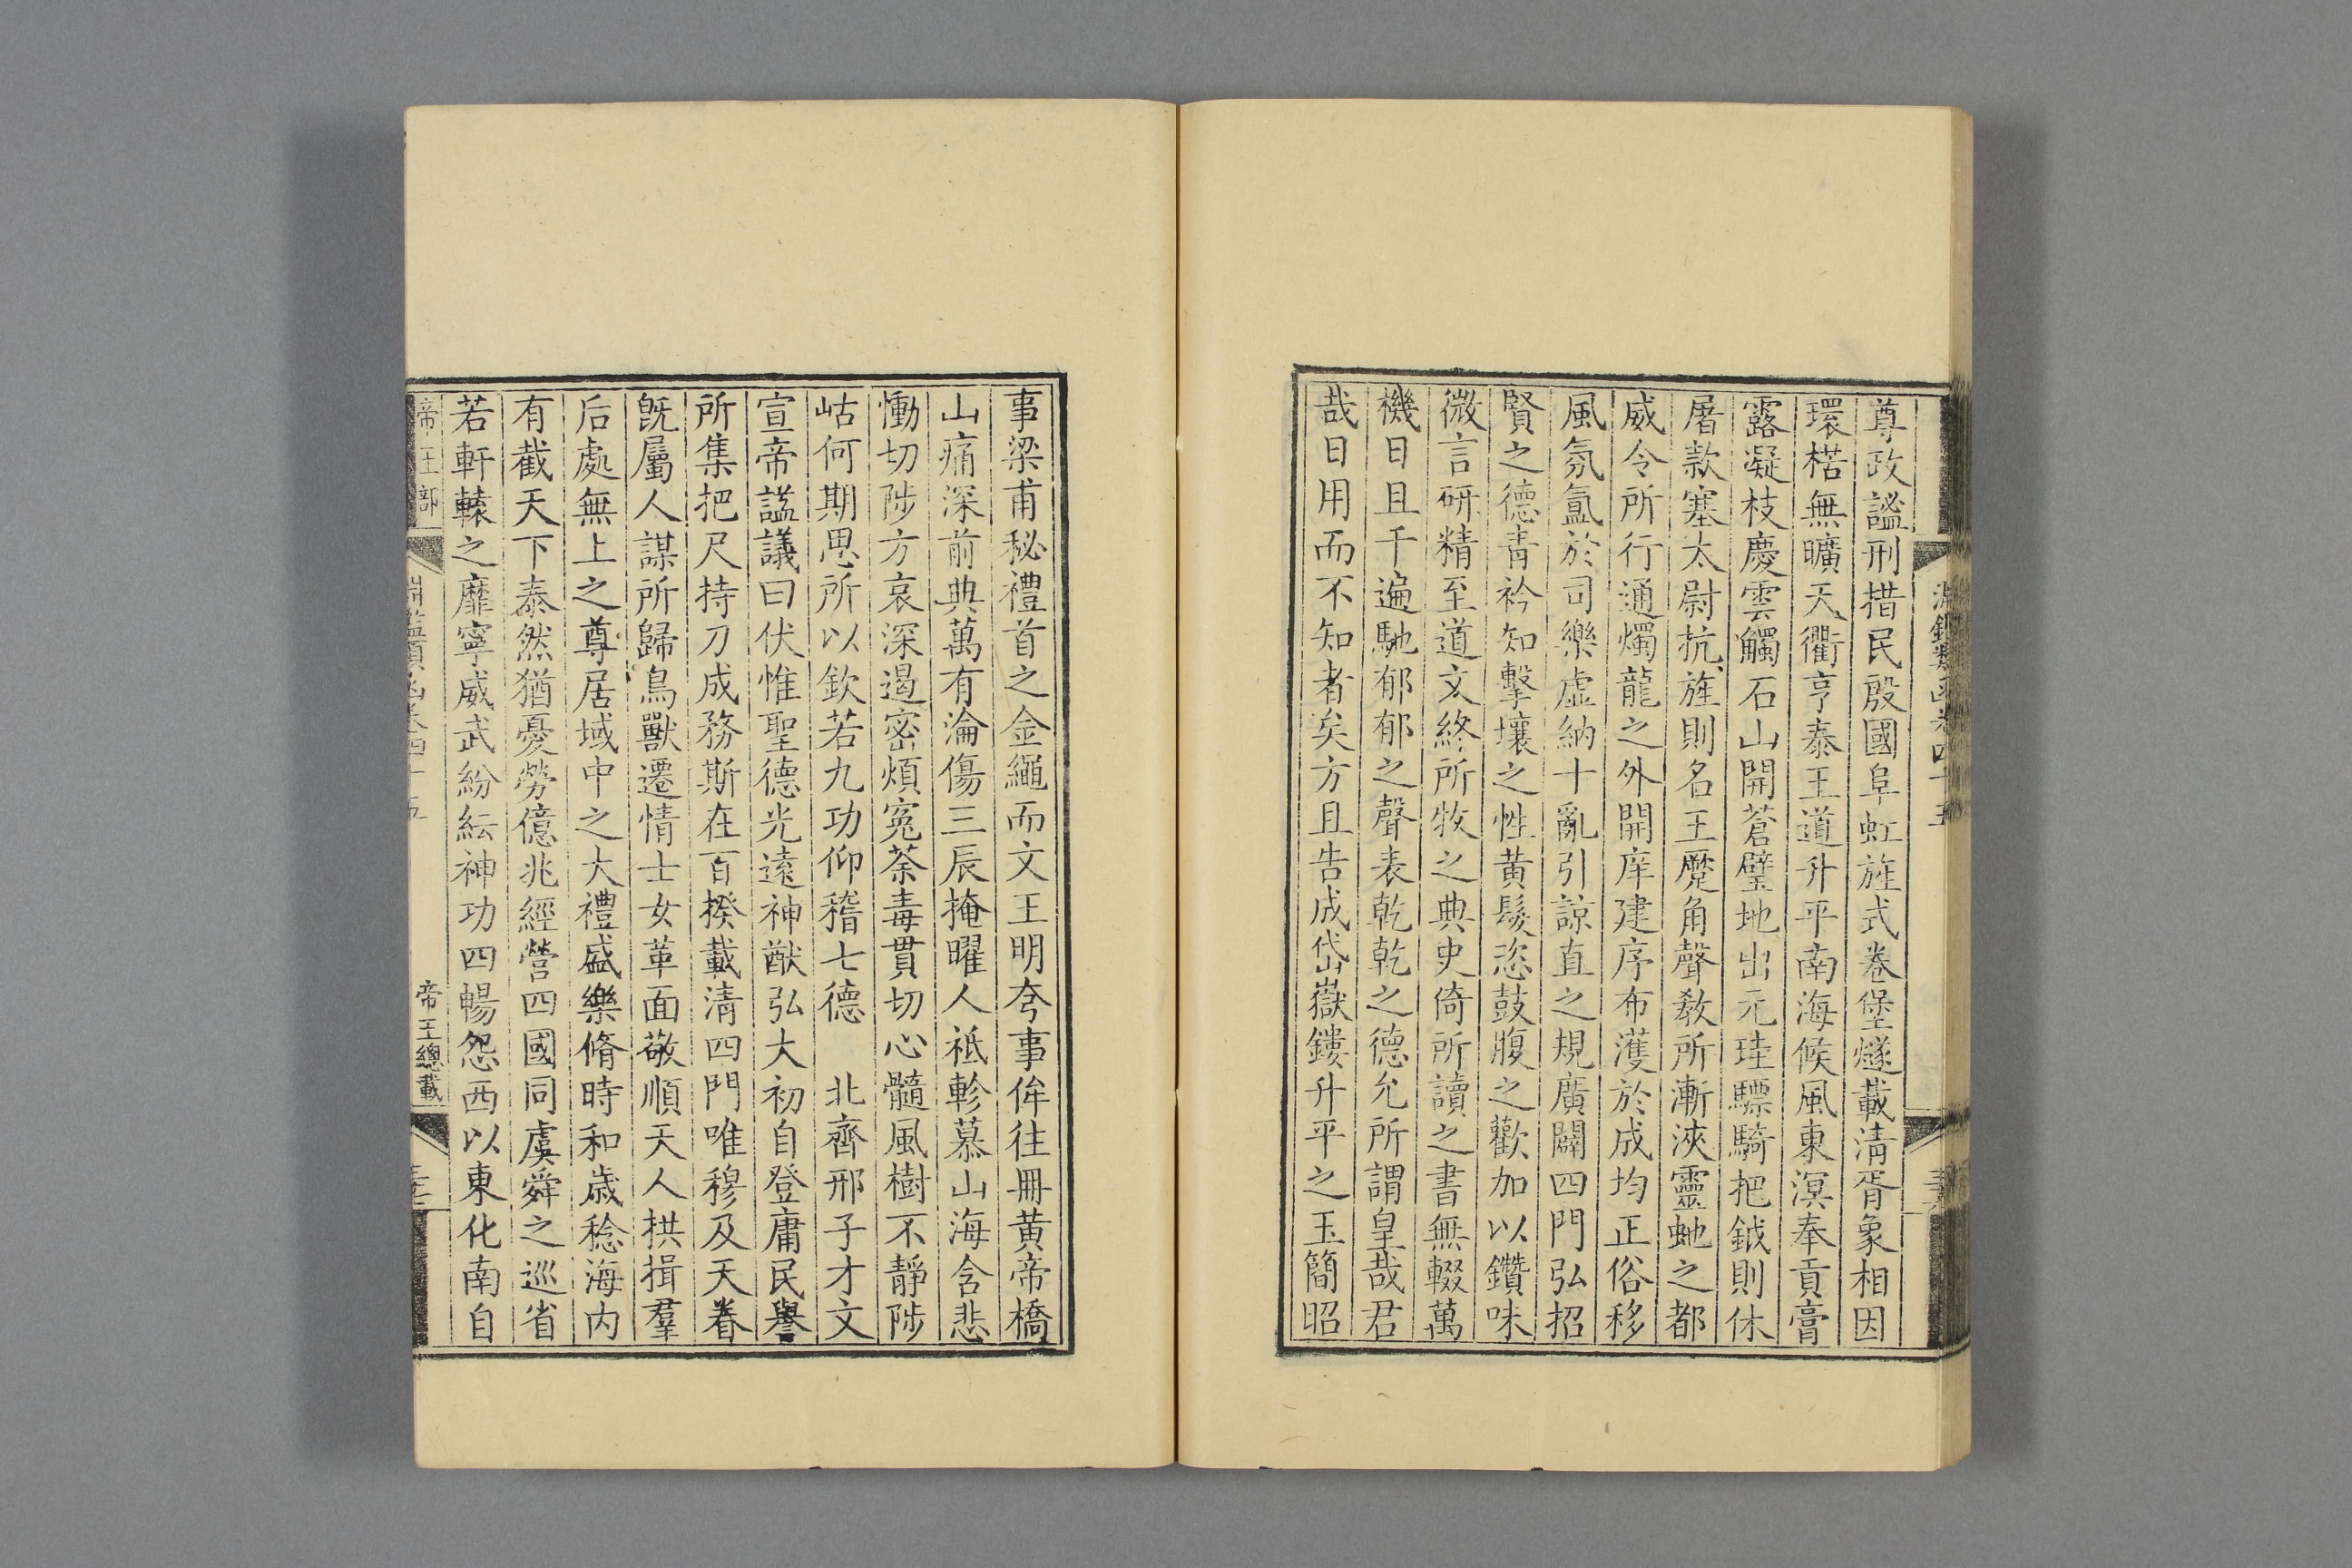 尊政謐刑措民殷國阜虹旌式卷堡燧載清胥象相因
環楛無曠天衢亨泰王道升平南海候風東溟奉貢膏
露凝枝慶雲觸石山開蒼璧地出元珪驃騎把鉞則休
屠款塞太尉抗旌則名王蹷角聲敎所漸浹靈虵之都
威令所行通燭龍之外開庠建序布濩於成均正俗移
風氛氳於司樂虛納十亂引諒直之規廣闢四門弘招
賢之德青衿知擊壤之性黄髮恣鼓腹之歡加以鑽味
微言研精至道文終所牧之典史倚所讀之書無輟萬
機日且千遍馳郁郁之聲表乾乾之德允所謂皇哉君
哉日用而不知者矣方且告成岱嶽鏤升平之玉簡昭
事梁甫秘禮首之金繩而文王明夸事侔往冊黄帝橋
山痛深前典萬有淪傷三辰掩曜人祗軫慕山海含悲
慟切陟方哀深遏密煩寃荼毒貫切心髓風樹不靜陟
岵何期思所以欽若九功仰稽七德　北齊邢子才文
宣帝謚議曰伏惟聖德光遠神猷弘大初自登庸民譽
所集把尺持刀成務斯在百揆載清四門唯穆及天眷
旣屬人謀所歸鳥獸遷情士女革面敬順天人拱揖羣
后處無上之尊居域中之大禮盛樂脩時和歲稔海内
有截天下泰然猶憂勞億兆經營四國同虞舜之巡省
若軒轅之靡寧威武紛紜神功四暢怨西以東化南自
帝王部
淵鑑類函卷四十五
帝王總載